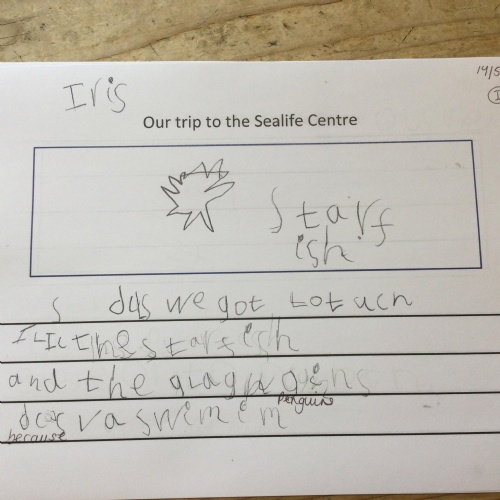 19/5
Iris
Our trip to the Sealife Centre
Starf
ish
s dus we got totuch
I Lic the starfish
and the
penguins
dcos va swimim
because